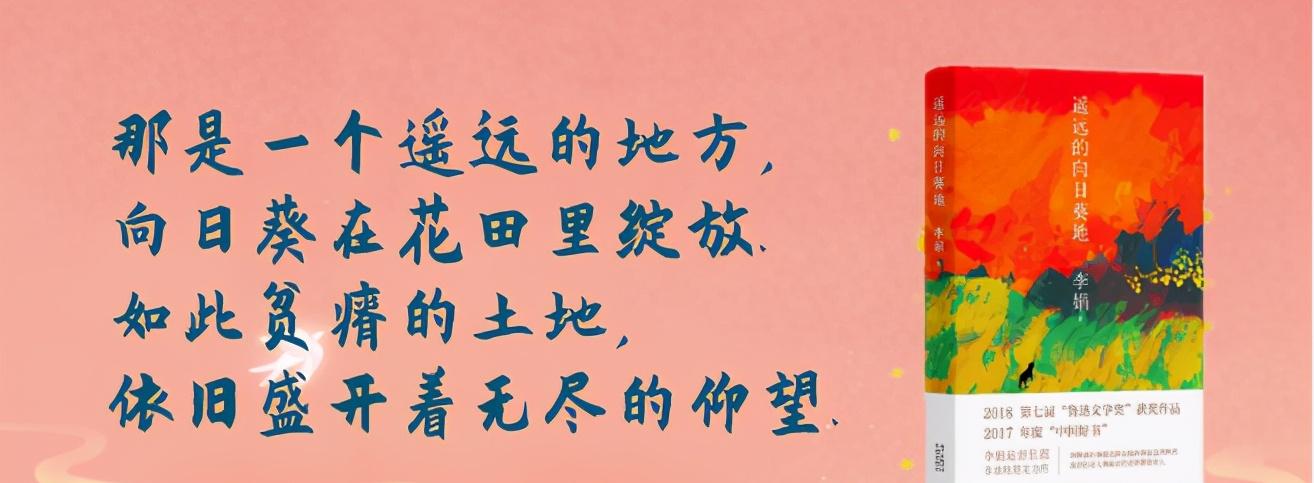 那是一个遥远的地方,
向日葵在花田里绽放.
如此贫瘠的土地,
依旧盛开着无尽的仰望.
遥远的向日葵地 李娟
遥远的向日葵地
李娟
2018 第七届“鲁迅文学奖”获奖作品
2017 年度“中国好书”